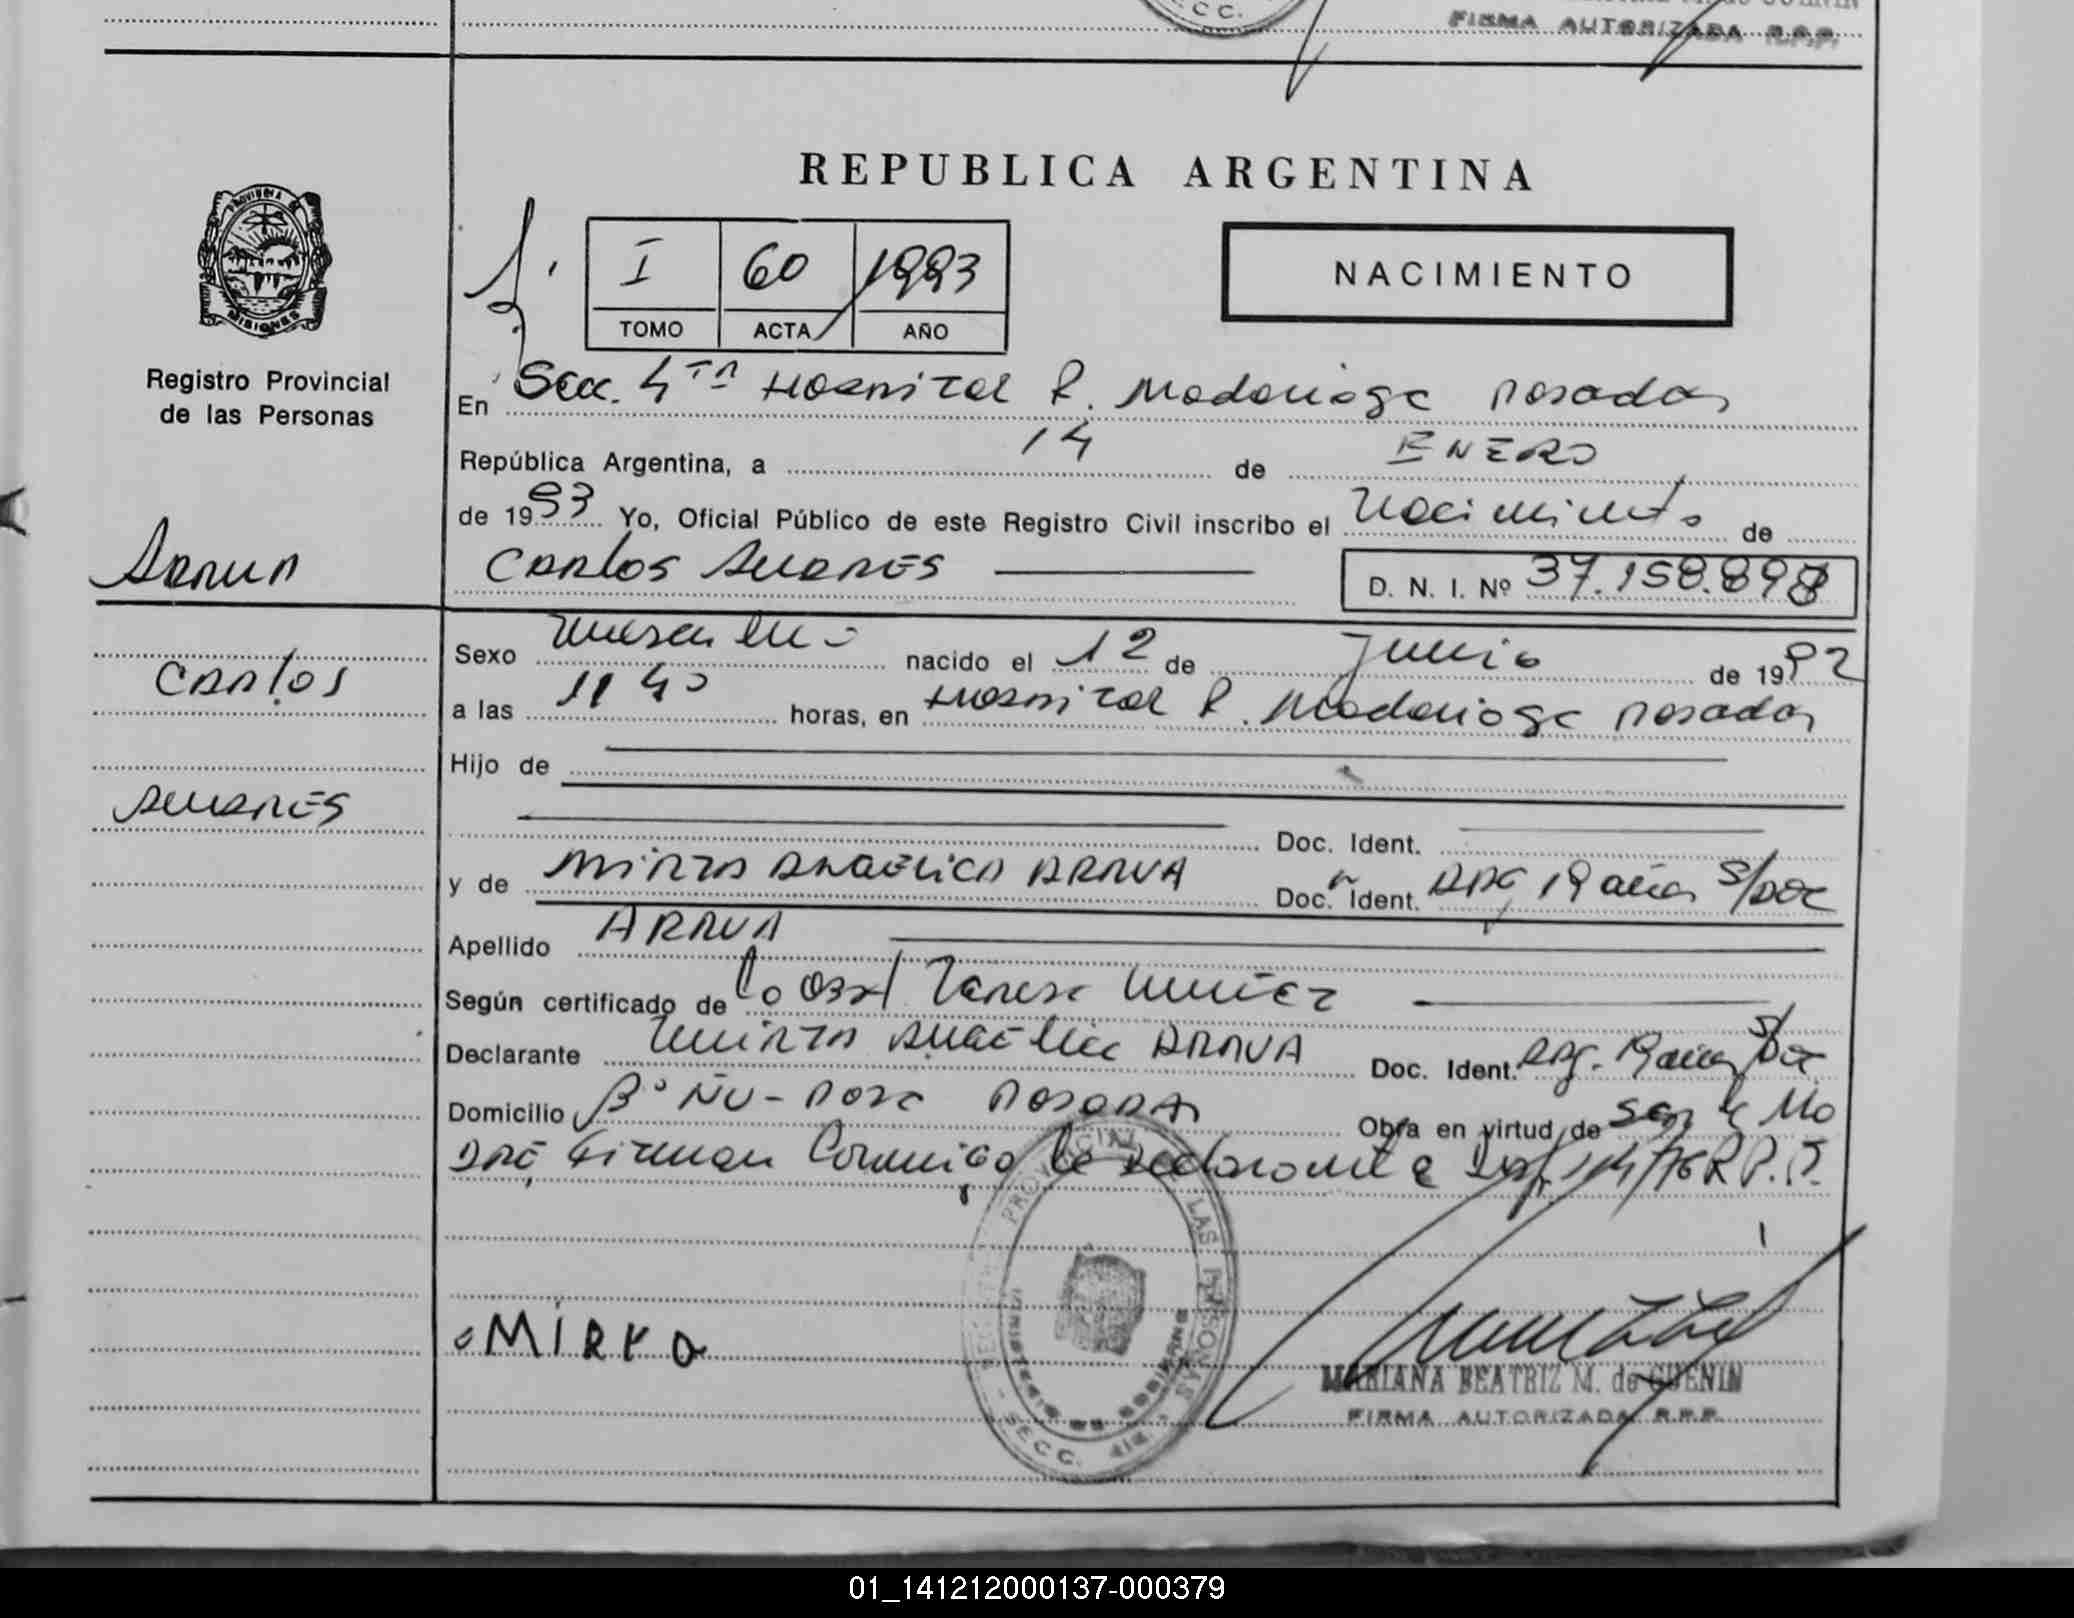 FIRMA AUTORIZADA R.P.P.
REPUBLICA ARGENTINA
PROVINCIA DE
MISIONES
I 60 1993
TOMO ACTA AÑO
NACIMIENTO
Registro Provincial
de las Personas
En Secc. 4ta Hospital R. Madariaga Posadas
República Argentina, a 14 de ENERO
de 1993 Yo, Oficial Público de este Registro Civil inscribo el Nacimiento de
CARLOS ANDRES D. N. I. Nº 37.158.898
ARAUA
CARLOS
ANDRES
Sexo Masculino nacido el 12 de Junio de 1992
a las 11 40 horas, en Hospital R. Madariaga Posadas
Hijo de
Doc. Ident.
y de MIRTA ANGELICA ARAUA Doc. Ident. ARG 19 años S/DOC
Apellido ARAUA
Según certificado de la Obst Teresa Nuñez
Declarante MIRTA ANGELICA ARAUA Doc. Ident. ARG. 19 años S/Doc
Domicilio Bº ÑU-PORA POSADAS Obra en virtud de ser la Ma
DRE Firman Conmigo la declarante 114/76 R.P.P.
MIRKA
PROVINCIAL DE LAS PERSONAS
SECC. 4ta.
MARIANA BEATRIZ M. de GUENIN
FIRMA AUTORIZADA R.P.P.
01_141212000137-000379